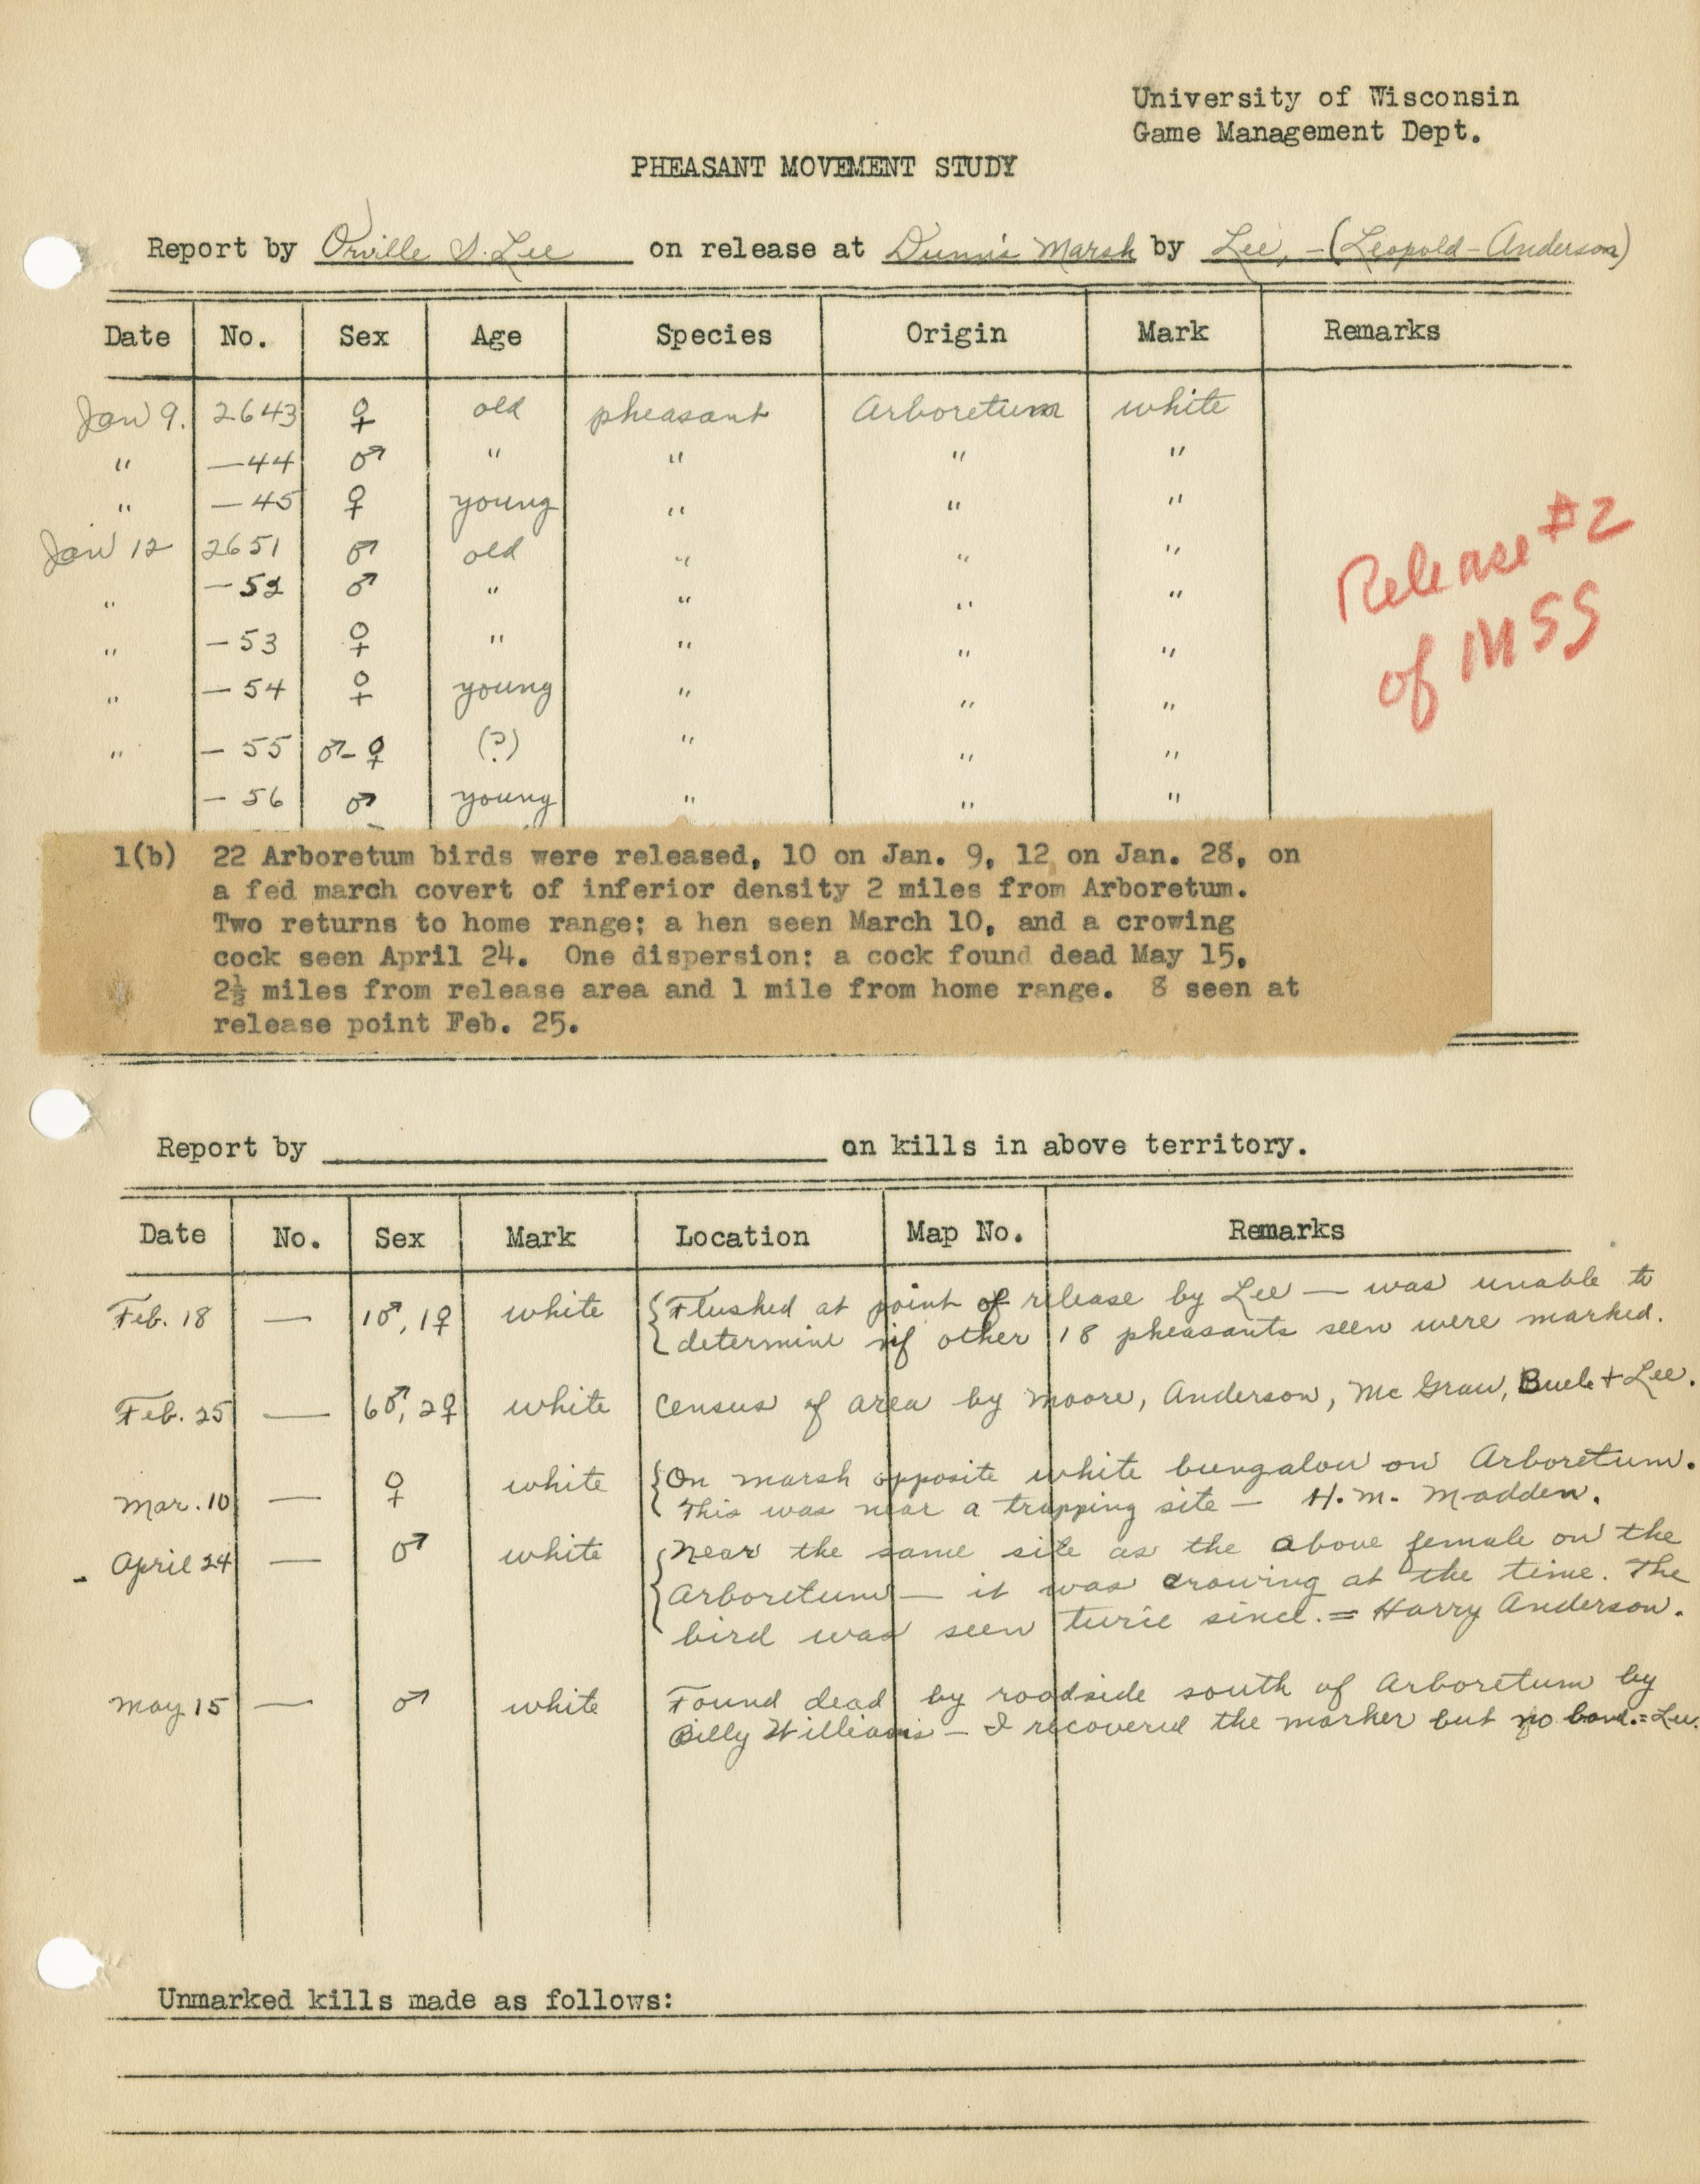 University of Wisconsin
Game Management Dept.
PHEASANT MOVEMENT STUDY
Report by Orville S. Lee on release at Dunn's Marsh by Lee, - (Leopold - Anderson)
Date No. Sex Age Species Origin Mark Remarks
Jan 9. 2643 ♀ old pheasant Arboretum white
" —44 ♂ " " " "
" —45 ♀ young " " "
Jan 12 2651 ♂ old " " "
" —52 ♂ " " " "
" —53 ♀ " " " "
" —54 ♀ young " " "
" —55 ♂-♀ (?) " " "
—56 ♂ young " " "
Release #2
of MSS
1(b) 22 Arboretum birds were released, 10 on Jan. 9, 12 on Jan. 28, on
a fed march covert of inferior density 2 miles from Arboretum.
Two returns to home range; a hen seen March 10, and a crowing
cock seen April 24. One dispersion: a cock found dead May 15,
2½ miles from release area and 1 mile from home range. 8 seen at
release point Feb. 25.
Report by on kills in above territory.
Date No. Sex Mark Location Map No. Remarks
Feb. 18 — 1♂, 1♀ white {Flushed at point of release by Lee — was unable to
determine if other 18 pheasants seen were marked.
Feb. 25 — 6♂, 2♀ white Census of area by Moore, Anderson, McGraw, Buele + Lee.
Mar. 10 — ♀ white {On marsh opposite white bungalow on Arboretum.
This was near a trapping site — H. M. Madden.
April 24 — ♂ white {Near the same site as the above female on the
Arboretum — it was crowing at the time. The
bird was seen twice since. = Harry Anderson.
May 15 — ♂ white Found dead by roadside south of Arboretum by
Billy Williams — I recovered the marker but no band. = Lee.
Unmarked kills made as follows: